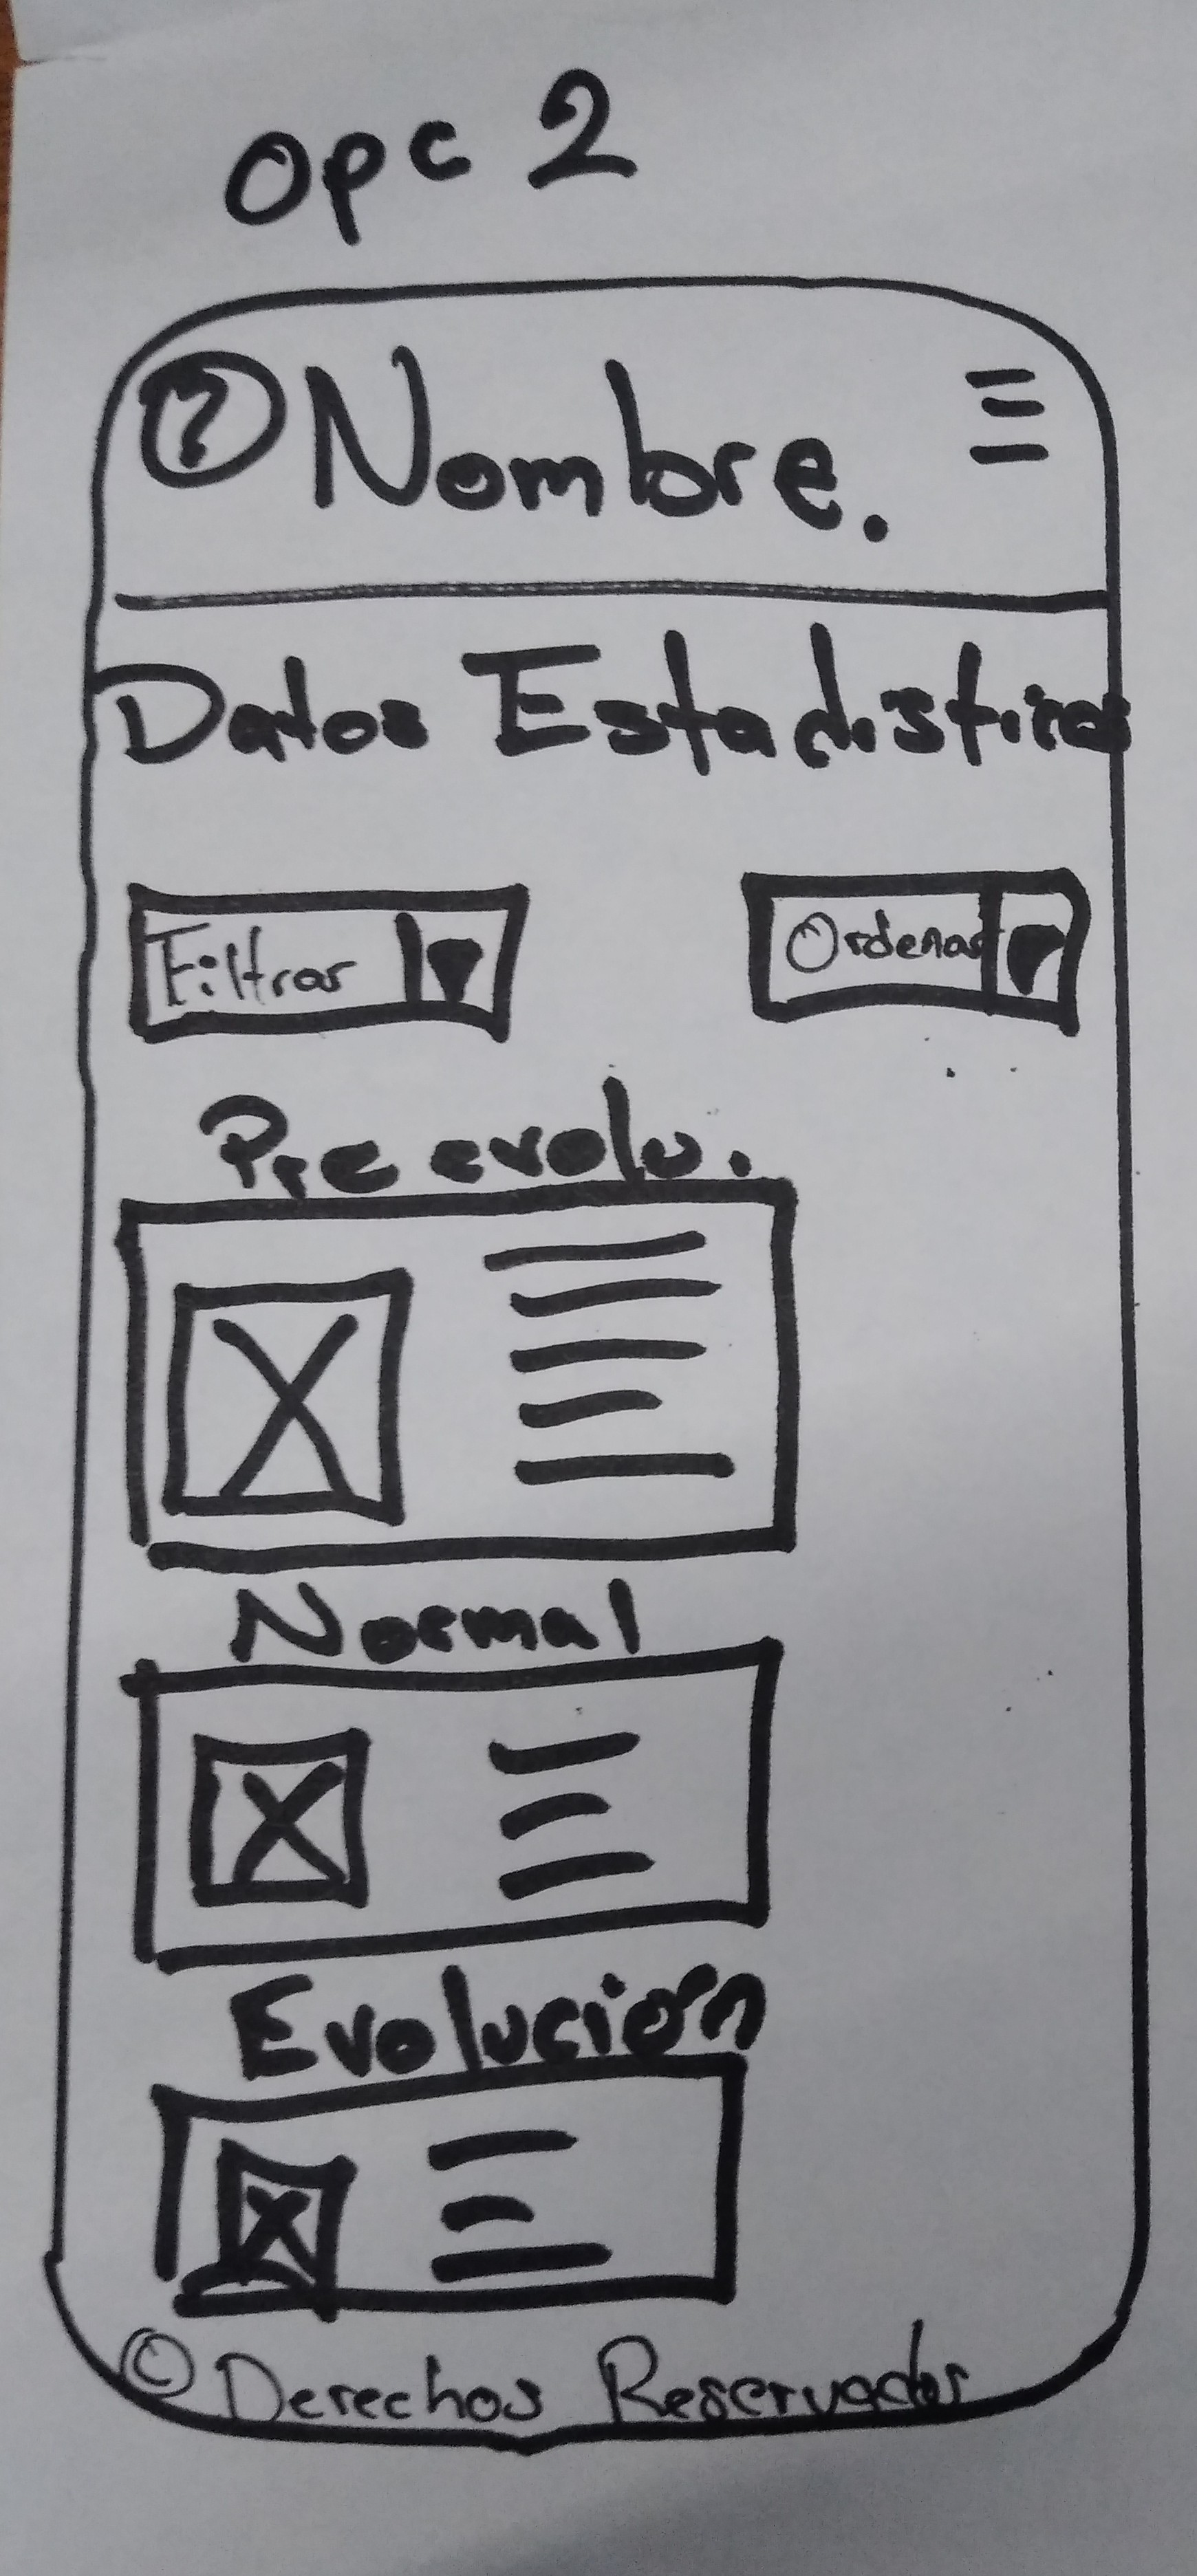 Opc 2
? Nombre.
Datos Estadisticos
Filtrar Ordenar
Pre evolu.
Normal
Evolución
© Derechos Reservados